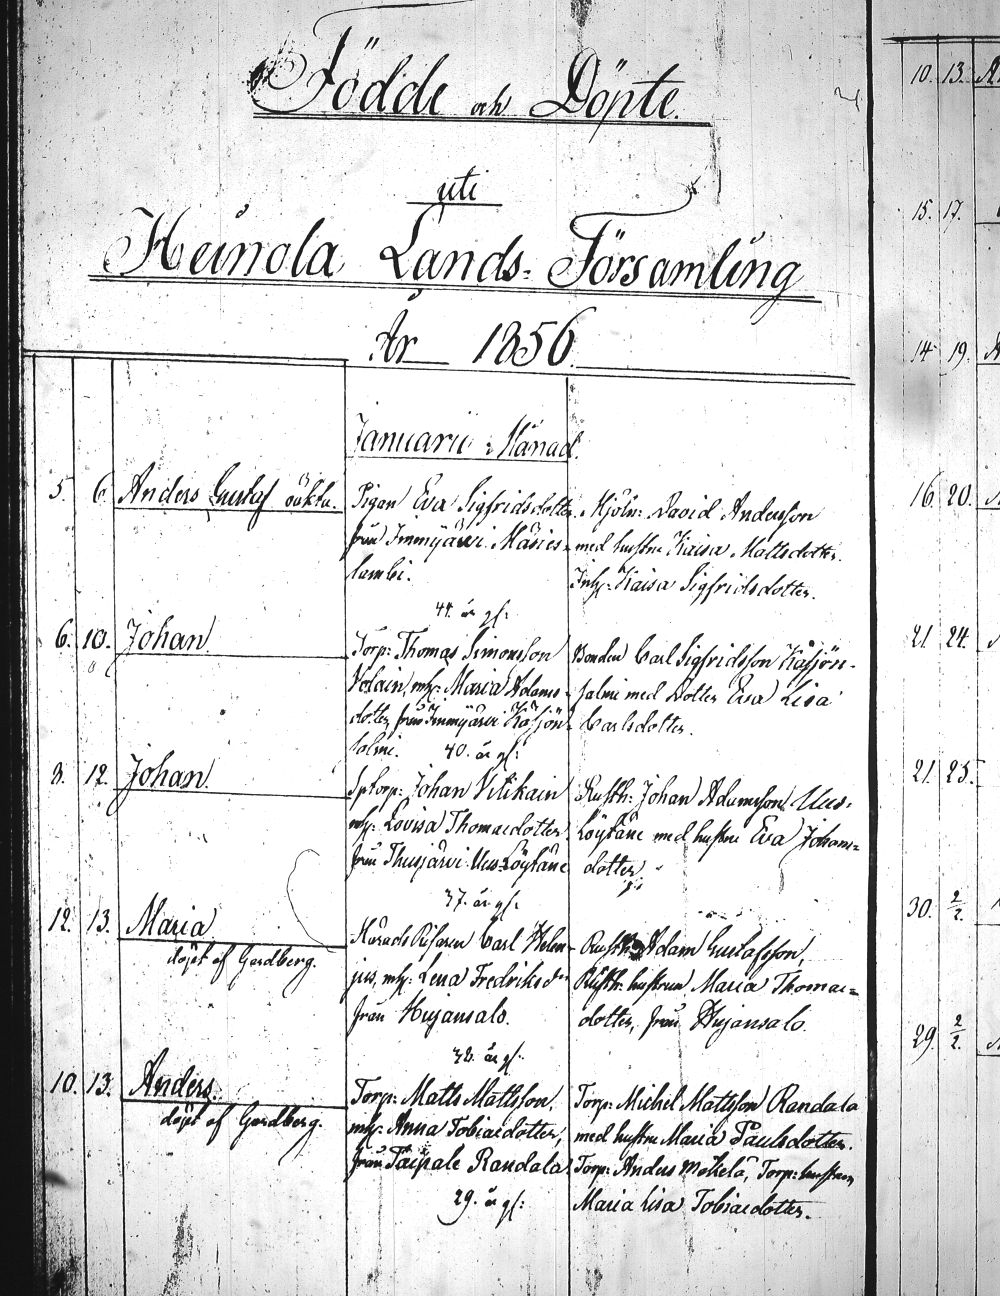 Födde och Döpte.
uti
Heinola Lands-Församling
År 1856.
Januarii Månad.
5. 6. Anders Gustaf oäkta.
Pigan Eva Sigfridsdotter
från Immjärvi Mäsies-
lambi.
44. år gl:
Mjöln: David Andersson
med hustru Kaisa Mattsdotter.
Inh: Kaisa Sigfridsdotter.
6. 10. Johan
Torp: Thomas Simonsson
mh: Maria Adams-
dotter från Immjärvi
salmi. 40. år gl:
Bonden Carl Sigfridsson
salmi med Dotter Eva Lisa
Carlsdotter.
8. 12. Johan
Sptorp: Johan Vilikain
mh: Lovisa Thomaedotter
från Thusjärvi Uus-Löytäne
37. år gl:
Rusth: Johan Adamsson Uus-
Löytäne med hustru Eva Johans-
dotter.
12. 13. Maria
döpt af Gerdberg.
Härads Carl Helen-
ius, mh: Lena Fredriksdr
från Hujansalo.
32. år gl:
Rusth: Adam Gustafsson,
Rusth: hustrun Maria Thomae-
dotter, från Hujansalo.
10. 13. Anders.
döpt af Gerdberg.
Torp: Matts Mattsson,
mh: Anna Tobiaedotter,
från Taipale Randala
29. år gl:
Torp: Michel Mattsson Randala
med hustru Maria Paulsdotter.
Torp: Anders Mäkelä, Torp: hustrun
Maria Lisa Tobiaedotter.
10. 13.
15. 17.
14 19.
16. 20.
21 24.
21. 25.
30. 2/2.
29. 2/2.